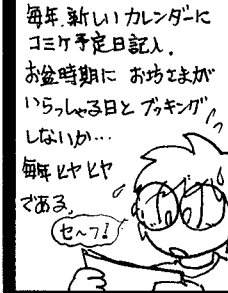 毎年、新しいカレンダーに
コミケ予定日記入。
お盆時期に お坊さまが
いらっしゃる日と ブッキング
しないか…
毎年ヒヤヒヤ
である。
セ〜フ!